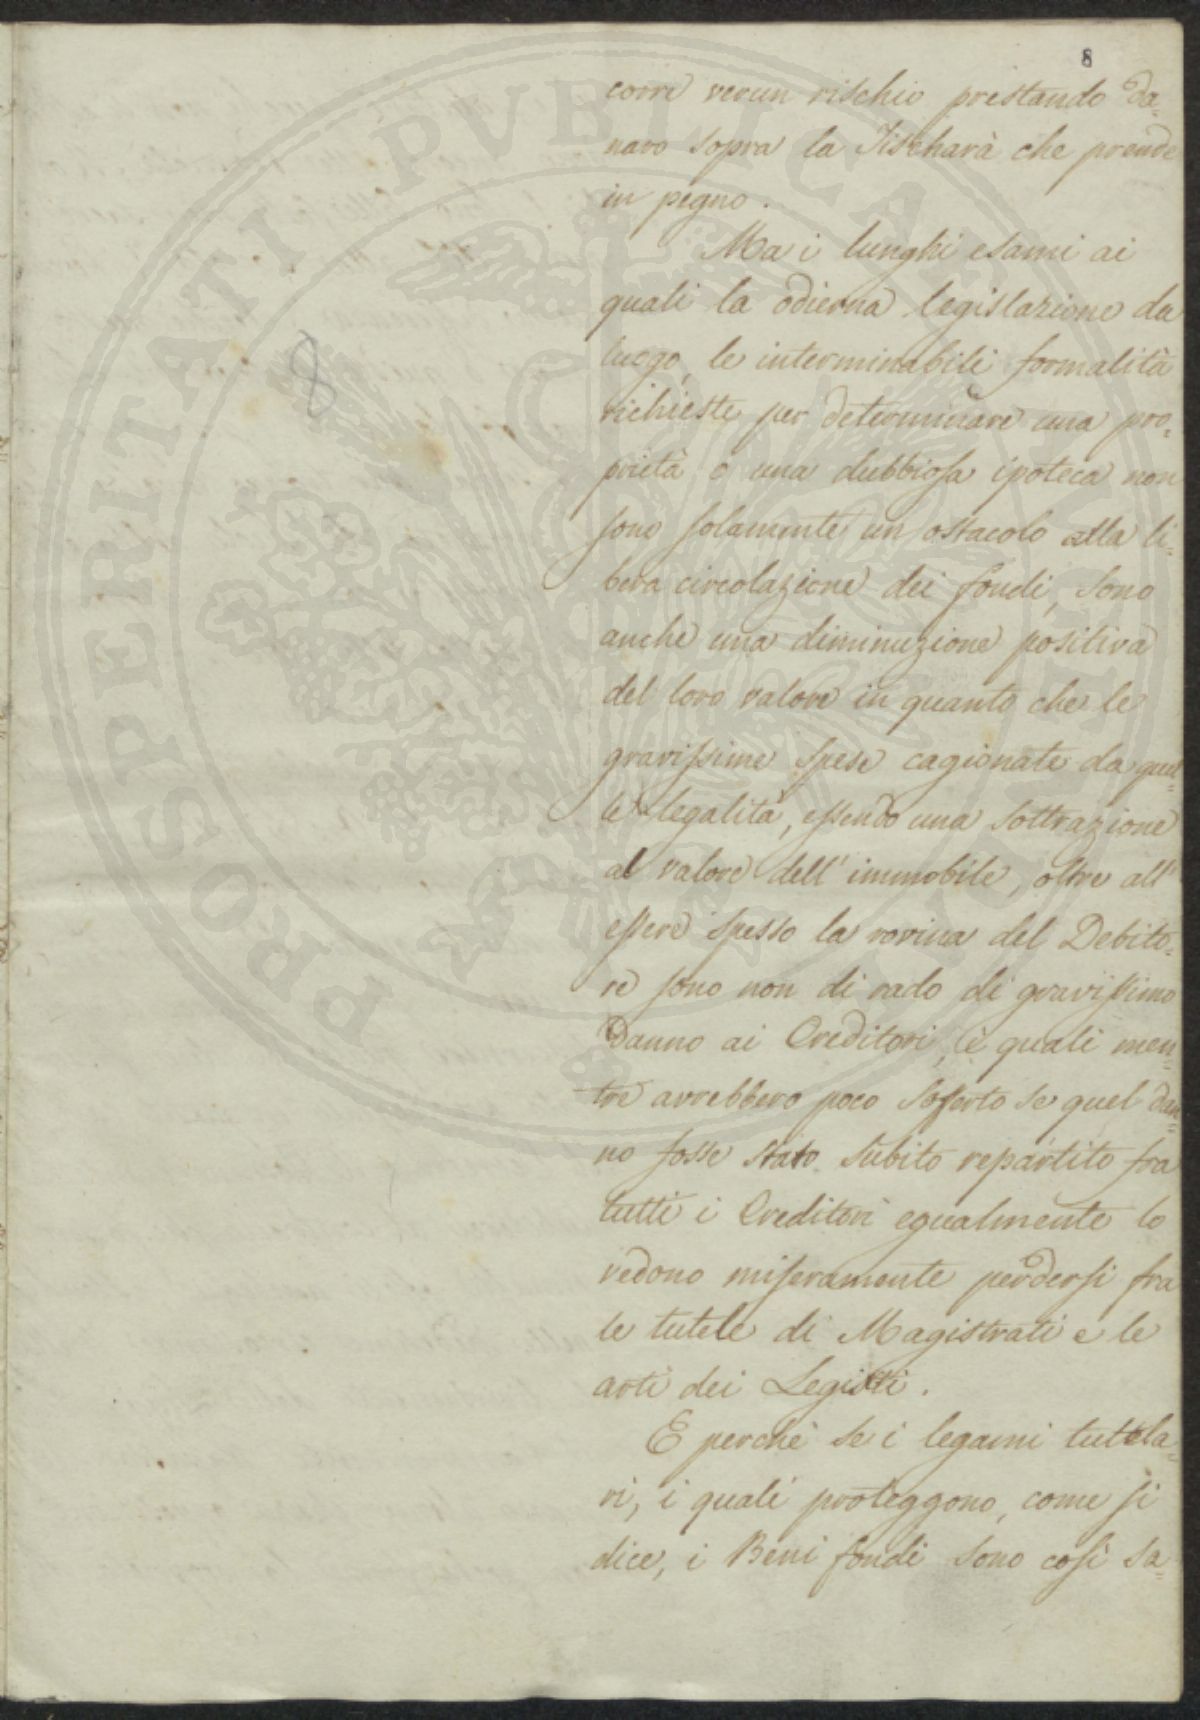 8
corre verun rischio prestando da=
naro sopra la Tischarà che prende
in pegno.
Ma i lunghi esami ai
quali la odierna legislazione da
luogo, le interminabili formalità
richieste per determinare una pro=
prietà o una dubbiosa ipoteca non
sono solamente un ostacolo alla li=
bera circolazione dei fondi, sono
anche una diminuzione positiva
del loro valore in quanto che le
gravissime spese cagionate da quel=
le legalità, essendo una sottrazione
al valore dell' immobile, oltre all'
essere spesso la rovina del Debito=
re sono non di rado di gravissimo
danno ai Creditori, i quali men=
tre avrebbero poco soferto se quel dan=
no fosse stato subito repartito fra
tutti i Creditori egualmente lo
vedono miseramente perdersi fra
le tutele di Magistrati e le
arti dei Legisti.
E perchè se i legami tutela=
ri, i quali proteggono, come si
dice, i Beni fondi sono così sa=
8
PROSPERITATI PUBLICAE